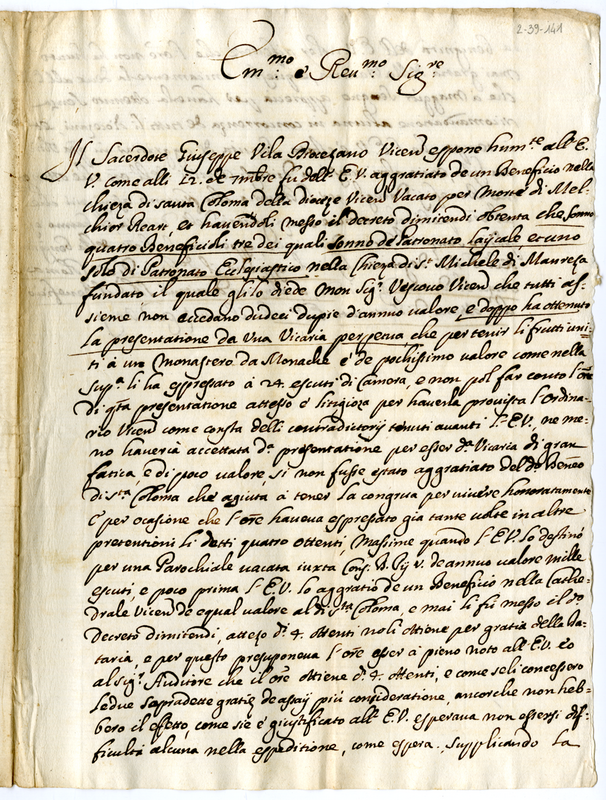 2-39-141
Em.mo e Reu.mo Sig.re
Il Sacerdote Giuseppe Vila Diocesano Vicen espone hum.te all E.
V. come alli 12. de 7mbre fu dell E.V. aggratiato de un Beneficio nella
chieza di santa Coloma della dioceze Vicen Vacato per morte di Mel-
chior Reart, et havendoli messo il decreto dimirendi obtenta che sonno
quatro Beneficioli tre dei quali sonno de Patronato laijcale et uno
solo di Patronato Ecclesiastico nella Chieza di S.t Michele di Manreza
fundato il quale gli lo diede Mon Sig.r Vescovo Vicen che tutti as-
sieme non eccedano di dieci dupie d'annuo valore, e doppo ha ottenuto
la presentatione da una Vicaria perpetua che per tenir li frutti uni-
ti à un monastero da Monache é de pochissimo valore come nella
sup.a li ha espressato à 24. escuti di Camera, e non pol far conto l'ore
di q.ta presentatione atteso é litigioza per haverla provista l'ordina-
rio Vicen come consta delli contradictorij tenuti avanti l'E.V., ne me-
no haveria accettata d.a presentatione per esser d.a Vicaria di gran
fatica, e di poco valore, si non fusse estato aggratiato del d.o Beneo
di s.ta Coloma che agiuta à tener la congrua per vivere honoratamente
E per ocasione che l'ore haveva espressato gia tante volte in altre
pretentioni li detti quatro ottenti, Massime quando l'E.V. lo destinò
per una Parochiale vacata iuxta de annuo valore mille
escuti, e poco prima l'E.V. lo aggratiò de un Beneficio nella Cathe-
drale Vicen de equal valore al di s.ta Coloma, e mai li fu messo il d.o
Decreto dimirendi, atteso d.i 4. ottenti noli ottiene per gratia della Da-
taria, e per questo presuponeva l'ore esser à pieno noto all E.V. et
al sig.r Auditore che il ore ottiene d.i 4. ottenti, e come se li concessero
le due sopradette gratie de assaij più consideratione, ancorche non heb-
bero il effetto, come si é giustificato all E.V. esperava non essersi dif-
ficultà alcuna nella espeditione, come espera. Supplicando la